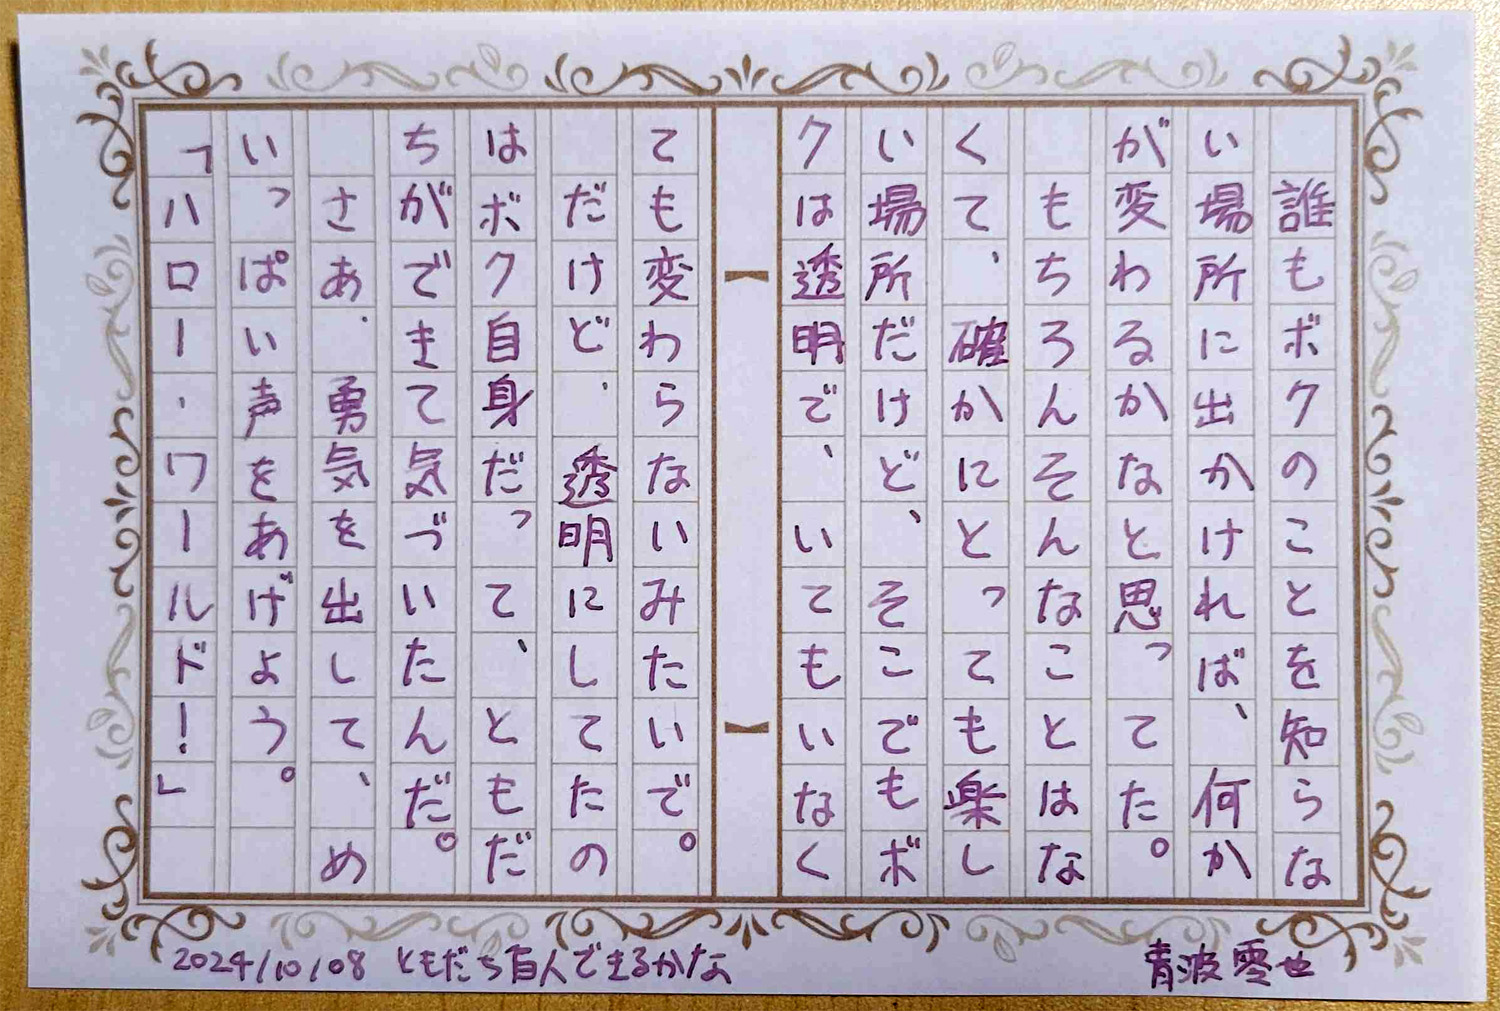 誰もボクのことを知らな
い場所に出かければ、何か
が変わるかなと思ってた。
もちろんそんなことはな
くて、確かにとっても楽し
い場所だけど、そこでもボ
クは透明で、いてもいなく
ても変わらないみたいで。
だけど、透明にしてたの
はボク自身だって、ともだ
ちができて気づいたんだ。
さあ、勇気を出して、め
いっぱい声をあげよう。
「ハロー・ワールド！」
2024/10/08 ともだち百人できるかな
青波零也